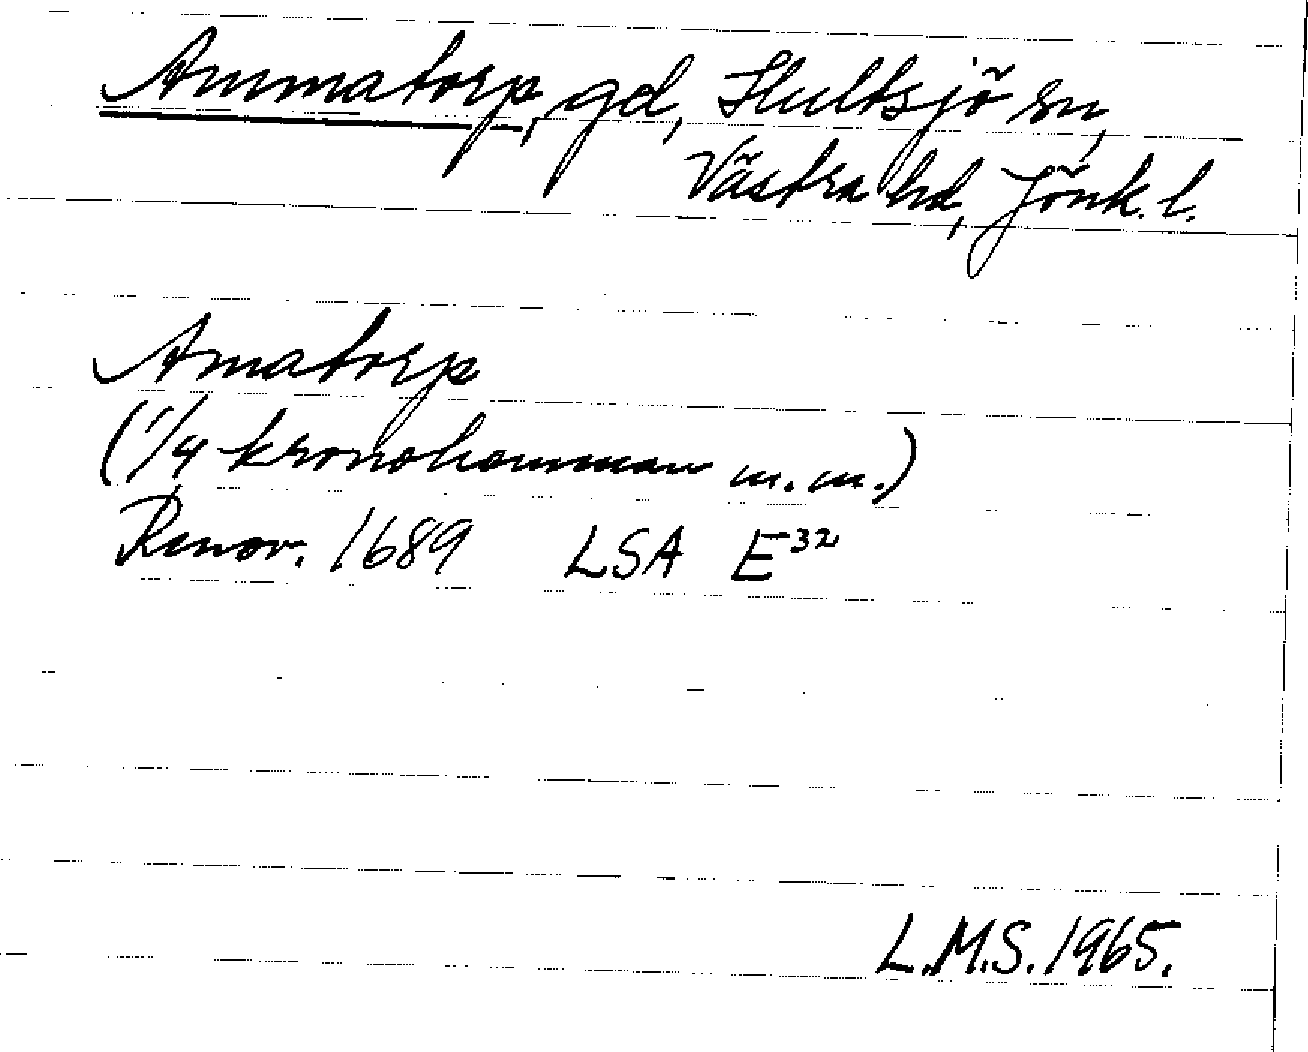 Ammatorp, gd, Hultsjö sn,
Västra hd, Jönk. l.
Amatorp
(1/4 kronohemman m. m.)
Renov. 1689 LSA E32
L.M.S. 1965.